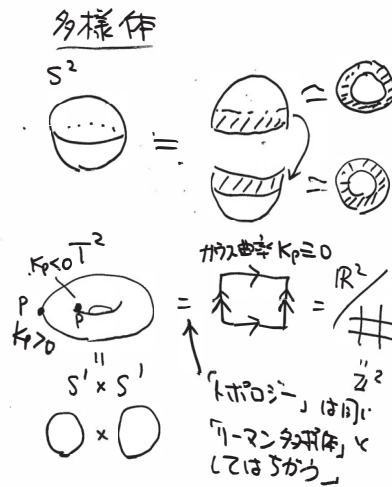 多様体
S²
=
≃
≃
T²
Kp<0
P
P
Kp>0
ガウス曲率 Kp≡0
=
=
ℝ²/ℤ²
=
=
S¹ × S¹
×
「トポロジー」は同じ
「リーマン多様体」と
してはちがう」